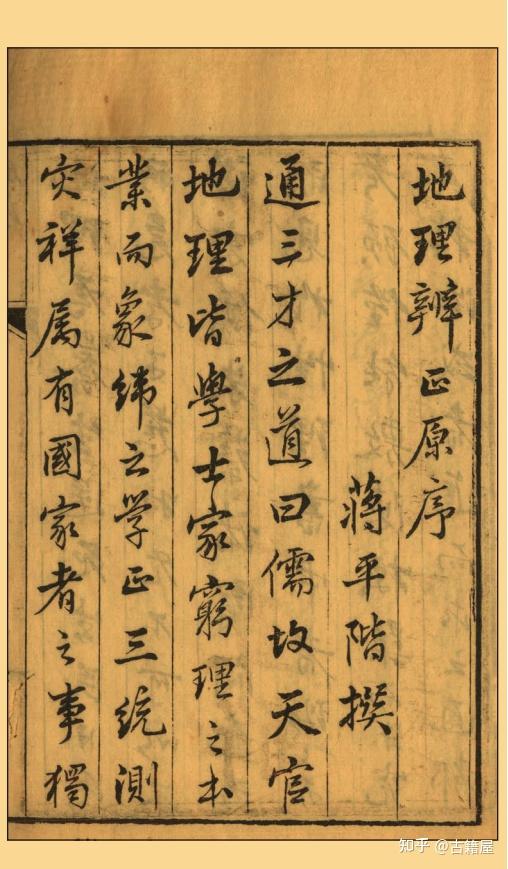 地理辨正原序
蔣平階撰
通三才之道曰儒故天官
地理皆學士家窮理之本
業而象緯之学正三統測
灾祥属有國家者之事獨
知乎 @古籍屋